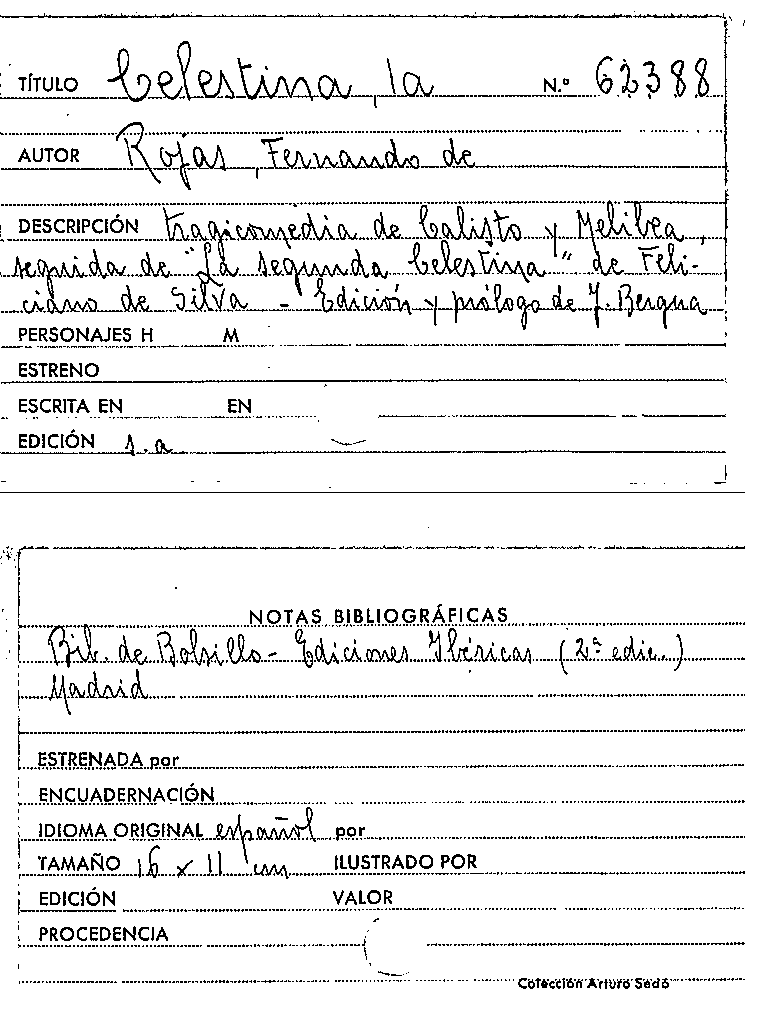 TÍTULO Celestina, la N.º 62388
AUTOR Rojas, Fernando de
DESCRIPCIÓN tragicomedia de Calisto y Melibea,
seguida de "La segunda Celestina" de Feli-
ciano de Silva - Edición y prólogo de J. Bergua
PERSONAJES H M
ESTRENO
ESCRITA EN EN
EDICIÓN s.a
NOTAS BIBLIOGRÁFICAS
Bib. de Bolsillo - Ediciones Ibéricas (2ª edic.)
Madrid
ESTRENADA por
ENCUADERNACIÓN
IDIOMA ORIGINAL español por
TAMAÑO 16 x 11 cm ILUSTRADO POR
EDICIÓN VALOR
PROCEDENCIA
Colección Arturo Sedó